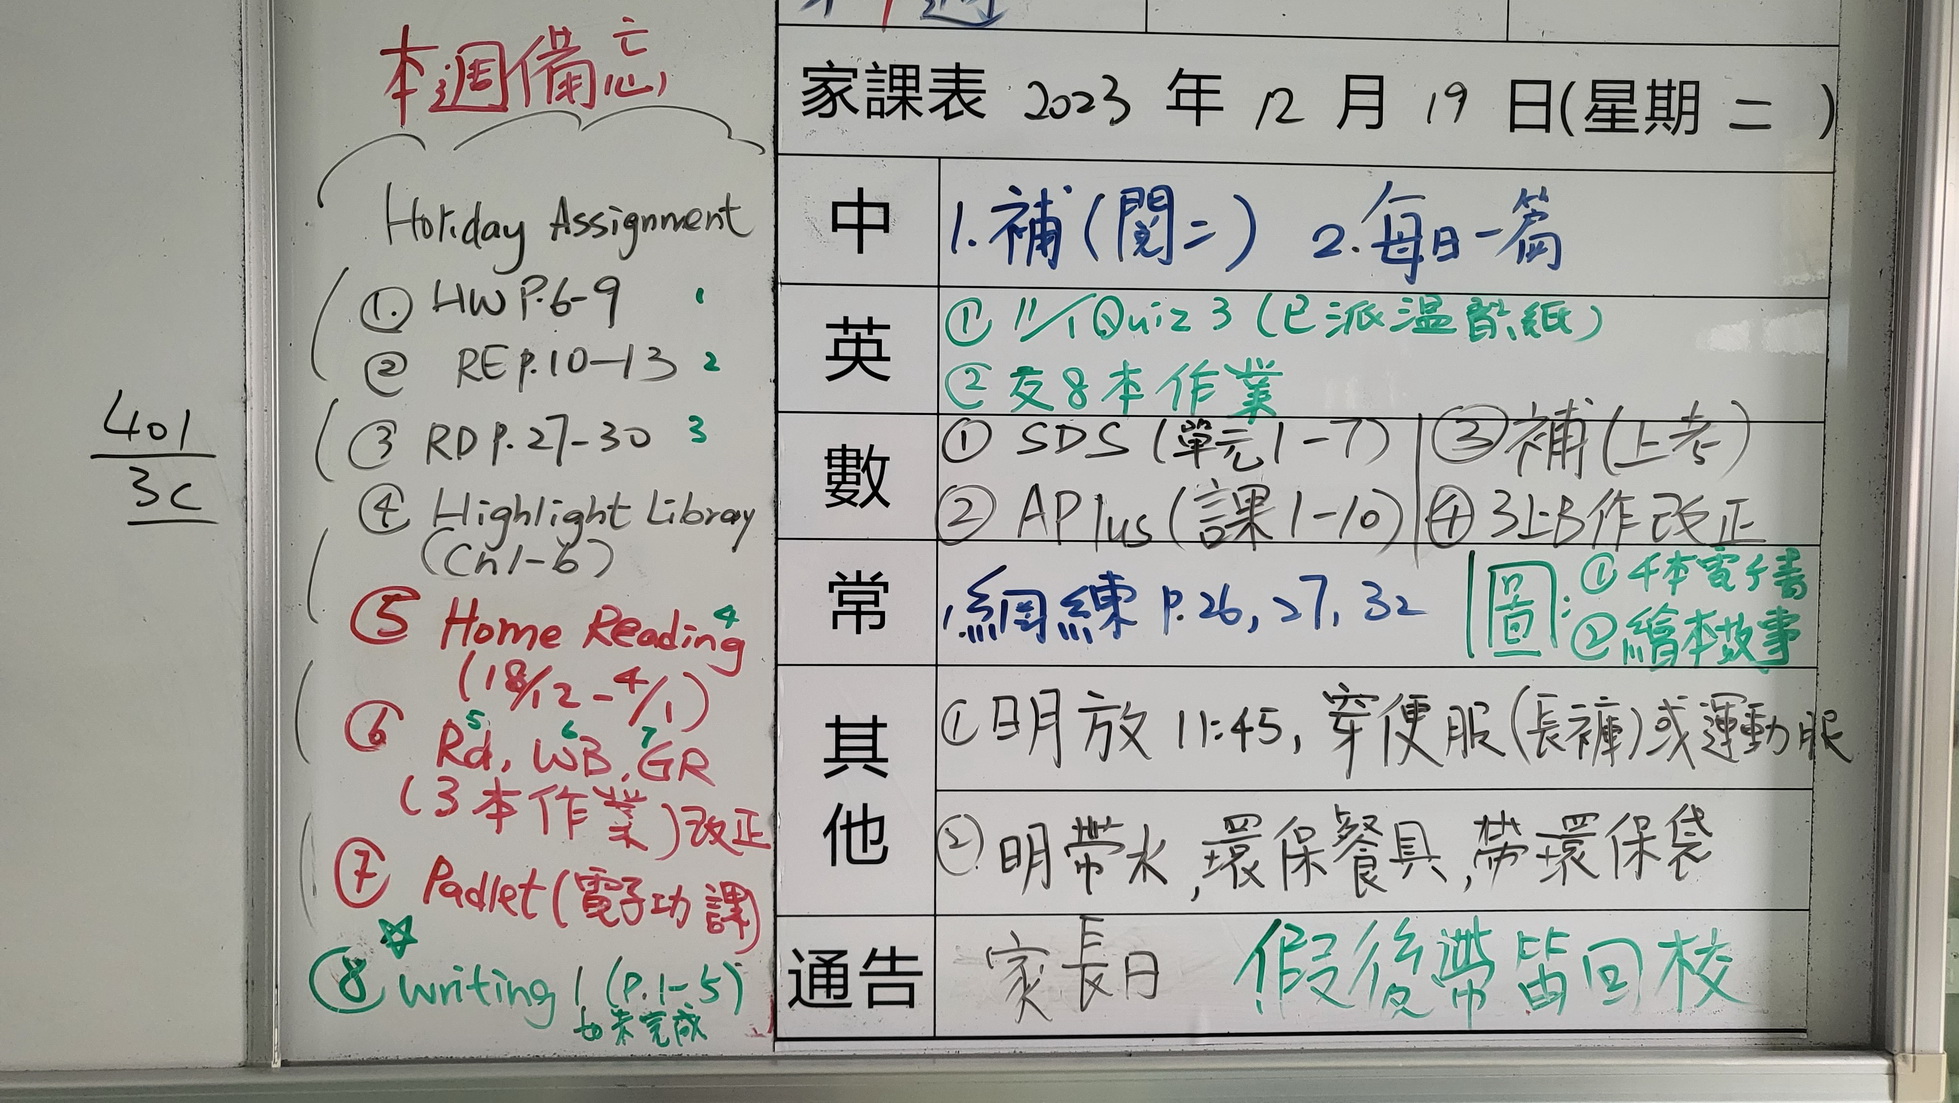 401
3C
本週備忘
Holiday Assignment
①. HW P.6-9 1
② RE P.10-13 2
③ RD P.27-30 3
④ Highlight Library
(Ch1-6)
⑤ Home Reading 4
(18/12-4/1)
⑥ Rd, WB, GR 5 6 7
(3本作業)改正
⑦ Padlet(電子功課)
☆
⑧ Writing 1 (P.1-5)
如未完成
週
家課表 2023 年 12 月 19 日(星期 二 )
中 1.補(閱二) 2.每日一篇
英 ① 11/1 Quiz 3 (已派温習紙)
② 交8本作業
數 ① SDS (單元1-7) ③補(上考)
② APlus(課1-10) ④ 3上B作改正
常 1.網練 P.26, 27, 32 圖: ① 4本電子書
② 繪本故事
其他 ①明放11:45, 穿便服(長褲)或運動服
② 明帶水, 環保餐具, 帶環保袋
通告 家長日 假後帶笛回校